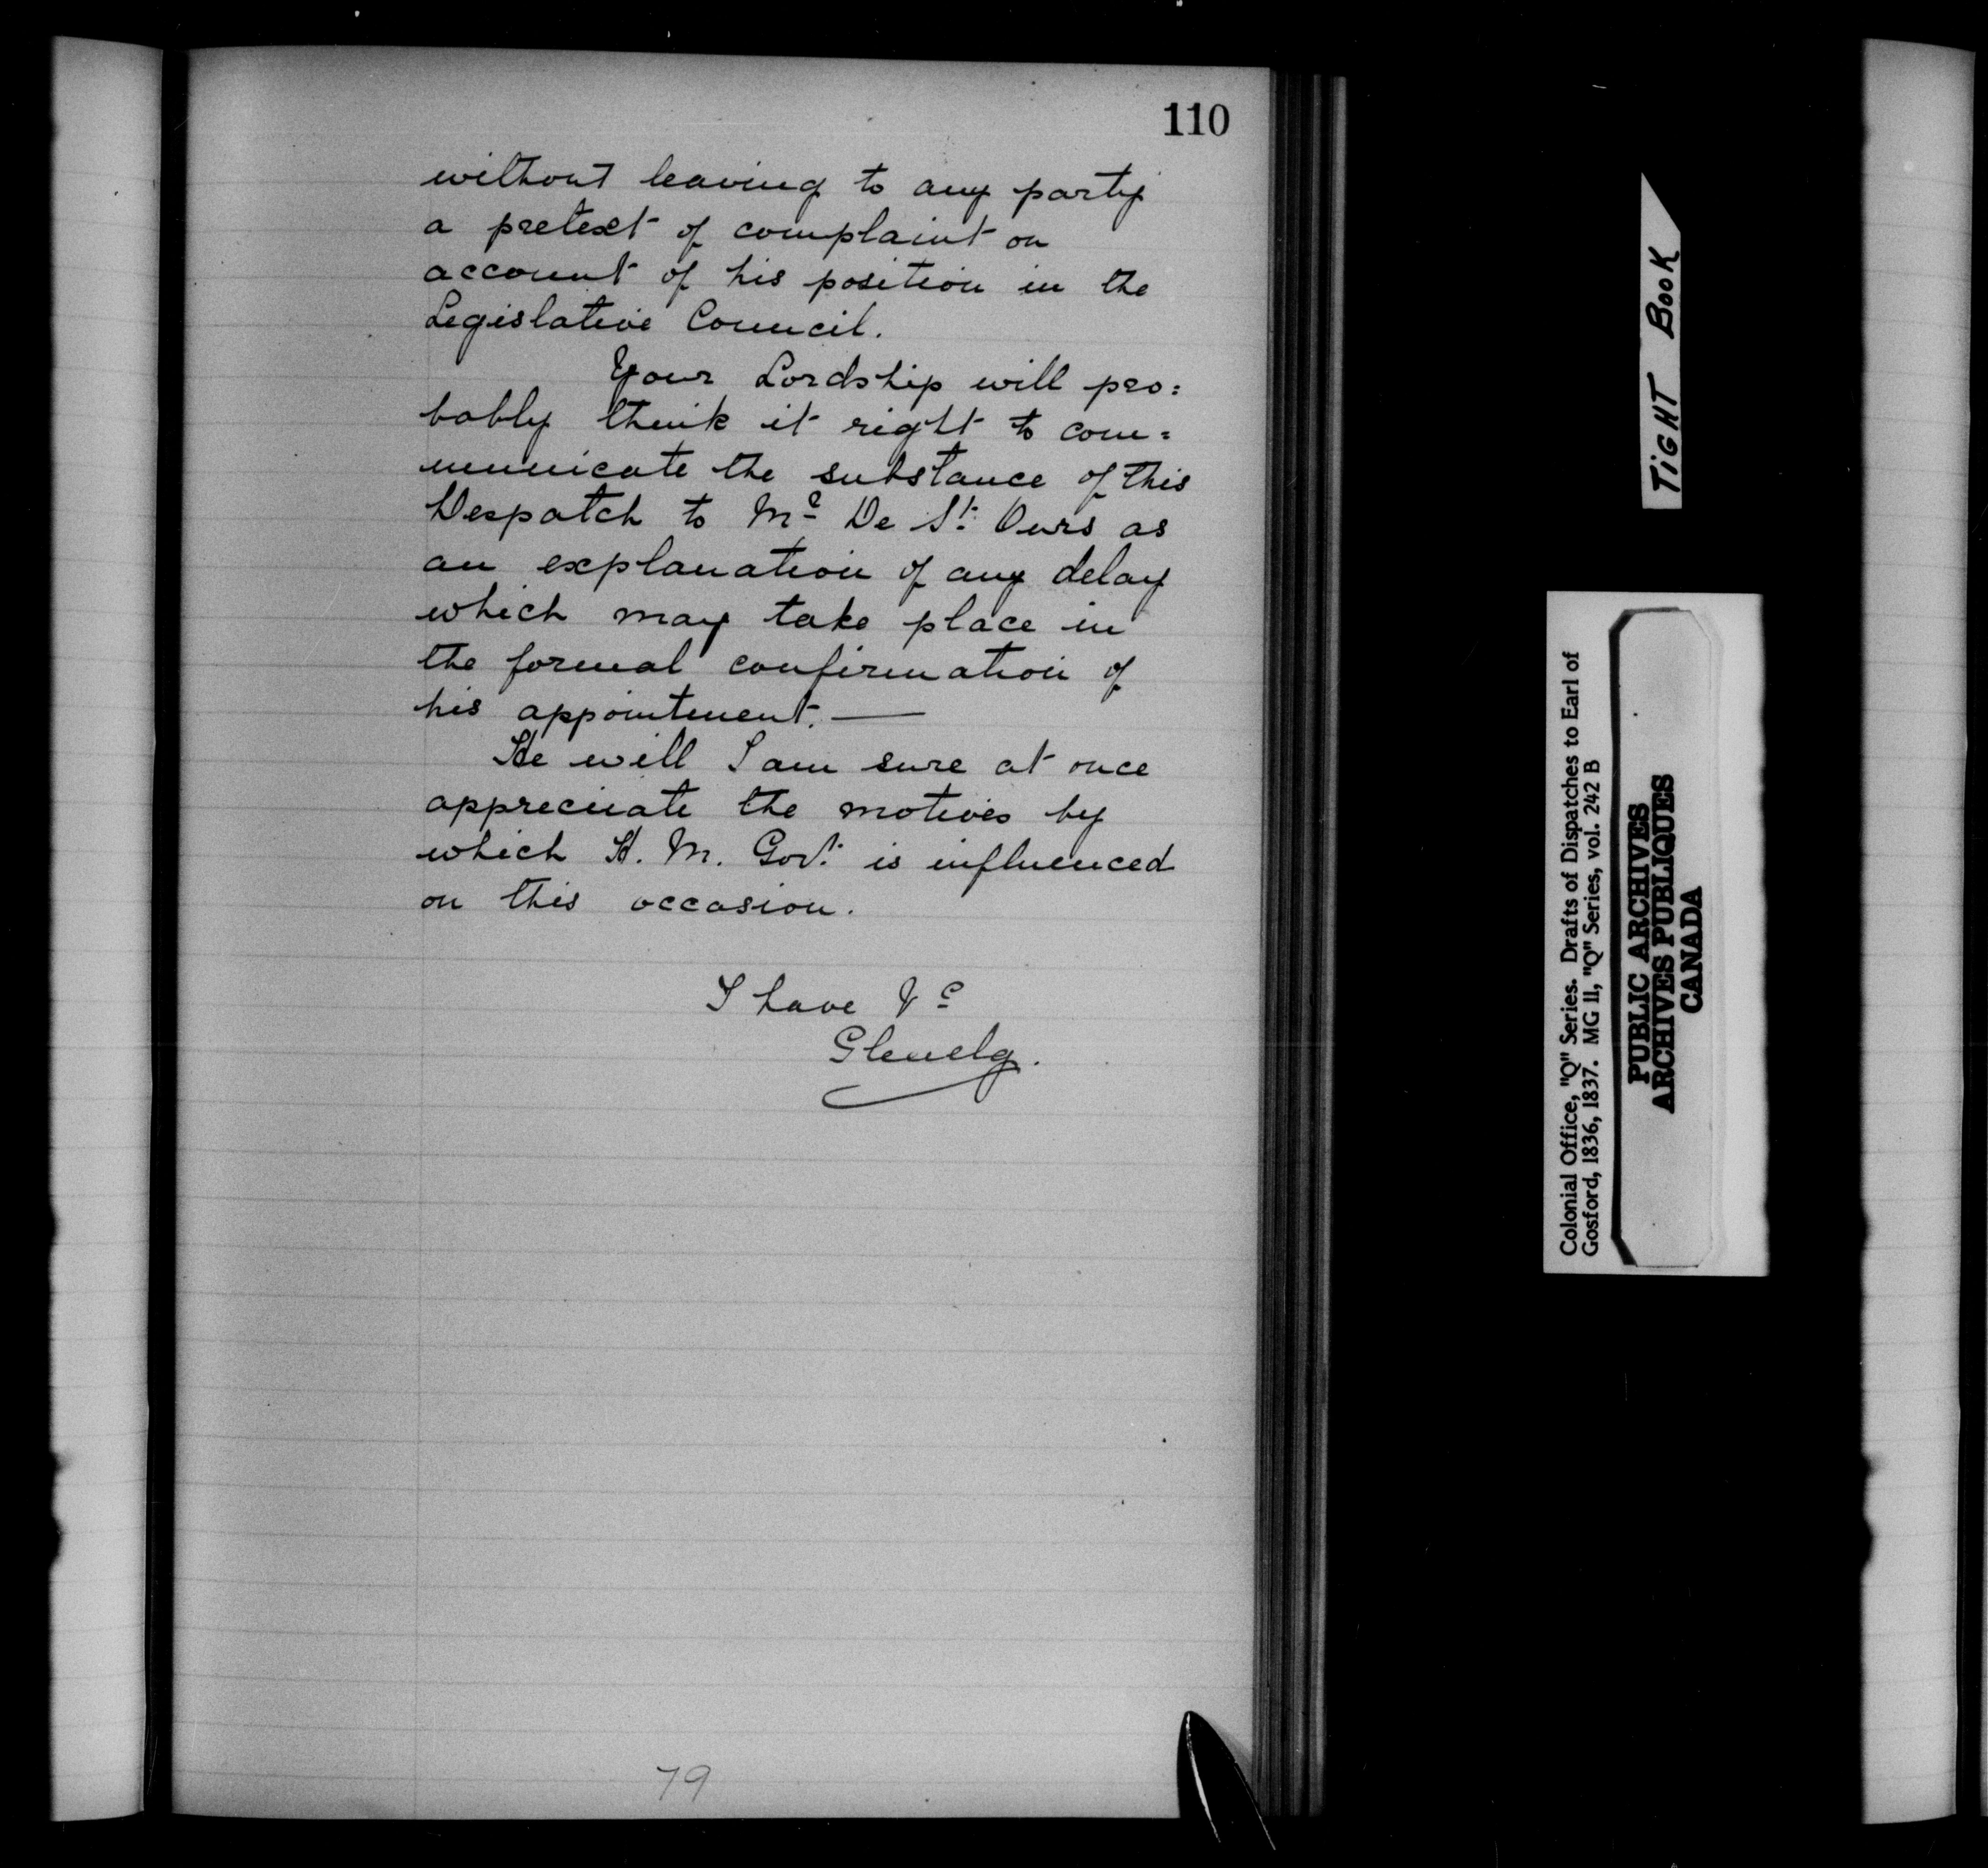 110
without leaving to any party
a pretext of complaint on
account of his position in the
Legislative Council.
Your Lordship will pro:
bably think it right to com=
municate the substance of this
Despatch to Mr De St. Ours as
an explanation of any delay
which may take place in
the formal confirmation of
his appointment. —
He will I am sure at once
appreciate the motives by
which H. M. Govt. is influenced
on this occasion.
I have &c
Glenelg.
79
TIGHT BOOK
Colonial Office, "Q" Series. Drafts of Dispatches to Earl of
Gosford, 1836, 1837. MG 11, "Q" Series, vol. 242 B
PUBLIC ARCHIVES
ARCHIVES PUBLIQUES
CANADA